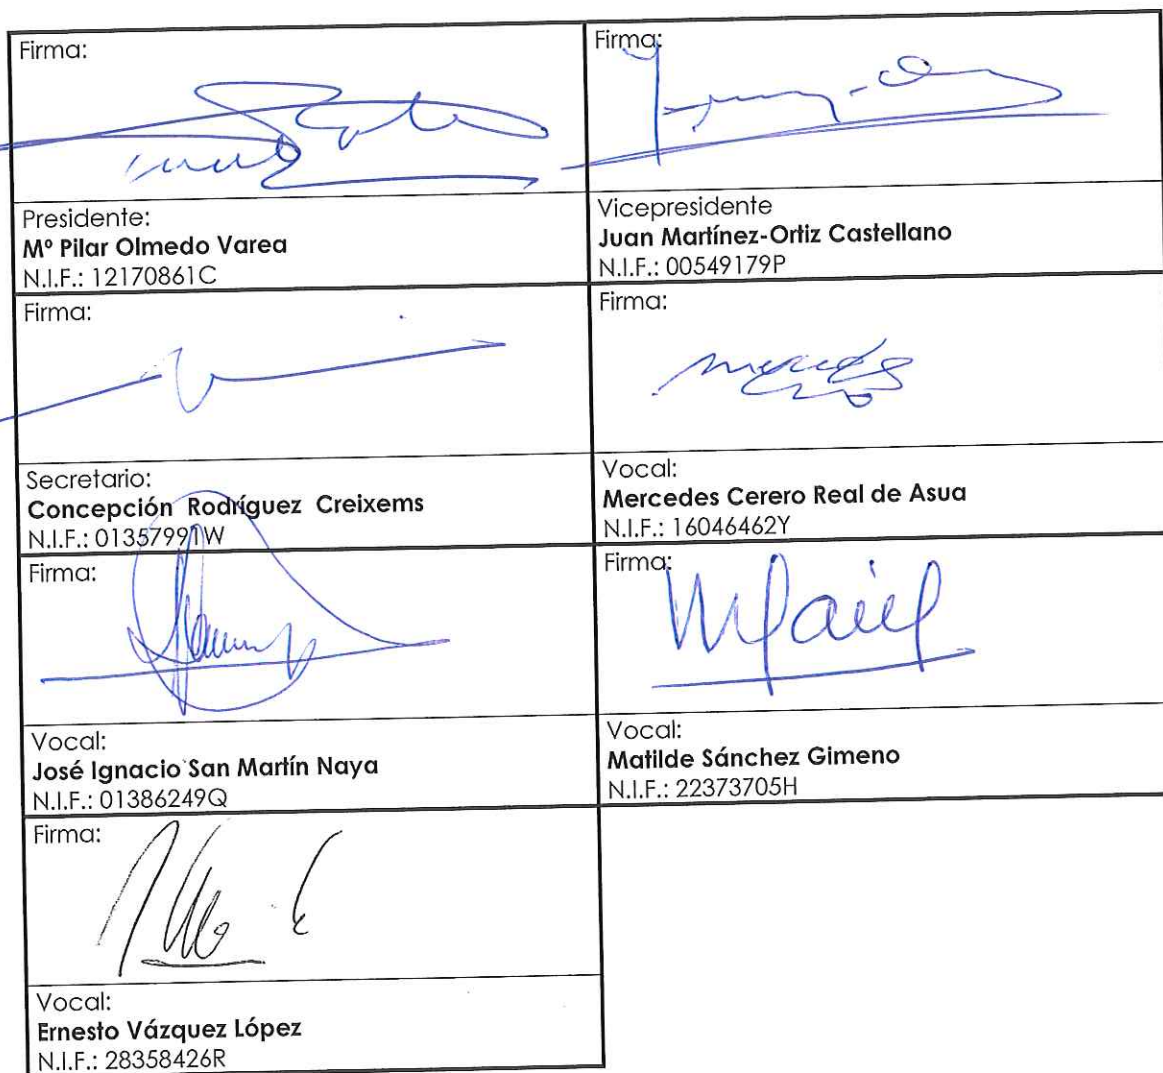 Firma:
Firma:
Presidente:
Mº Pilar Olmedo Varea
N.I.F.: 12170861C
Vicepresidente
Juan Martínez-Ortiz Castellano
N.I.F.: 00549179P
Firma:
Firma:
Mercedes
Secretario:
Concepción Rodríguez Creixems
N.I.F.: 01357991W
Vocal:
Mercedes Cerero Real de Asua
N.I.F.: 16046462Y
Firma:
Firma:
Vocal:
José Ignacio San Martín Naya
N.I.F.: 01386249Q
Vocal:
Matilde Sánchez Gimeno
N.I.F.: 22373705H
Firma:
Vocal:
Ernesto Vázquez López
N.I.F.: 28358426R